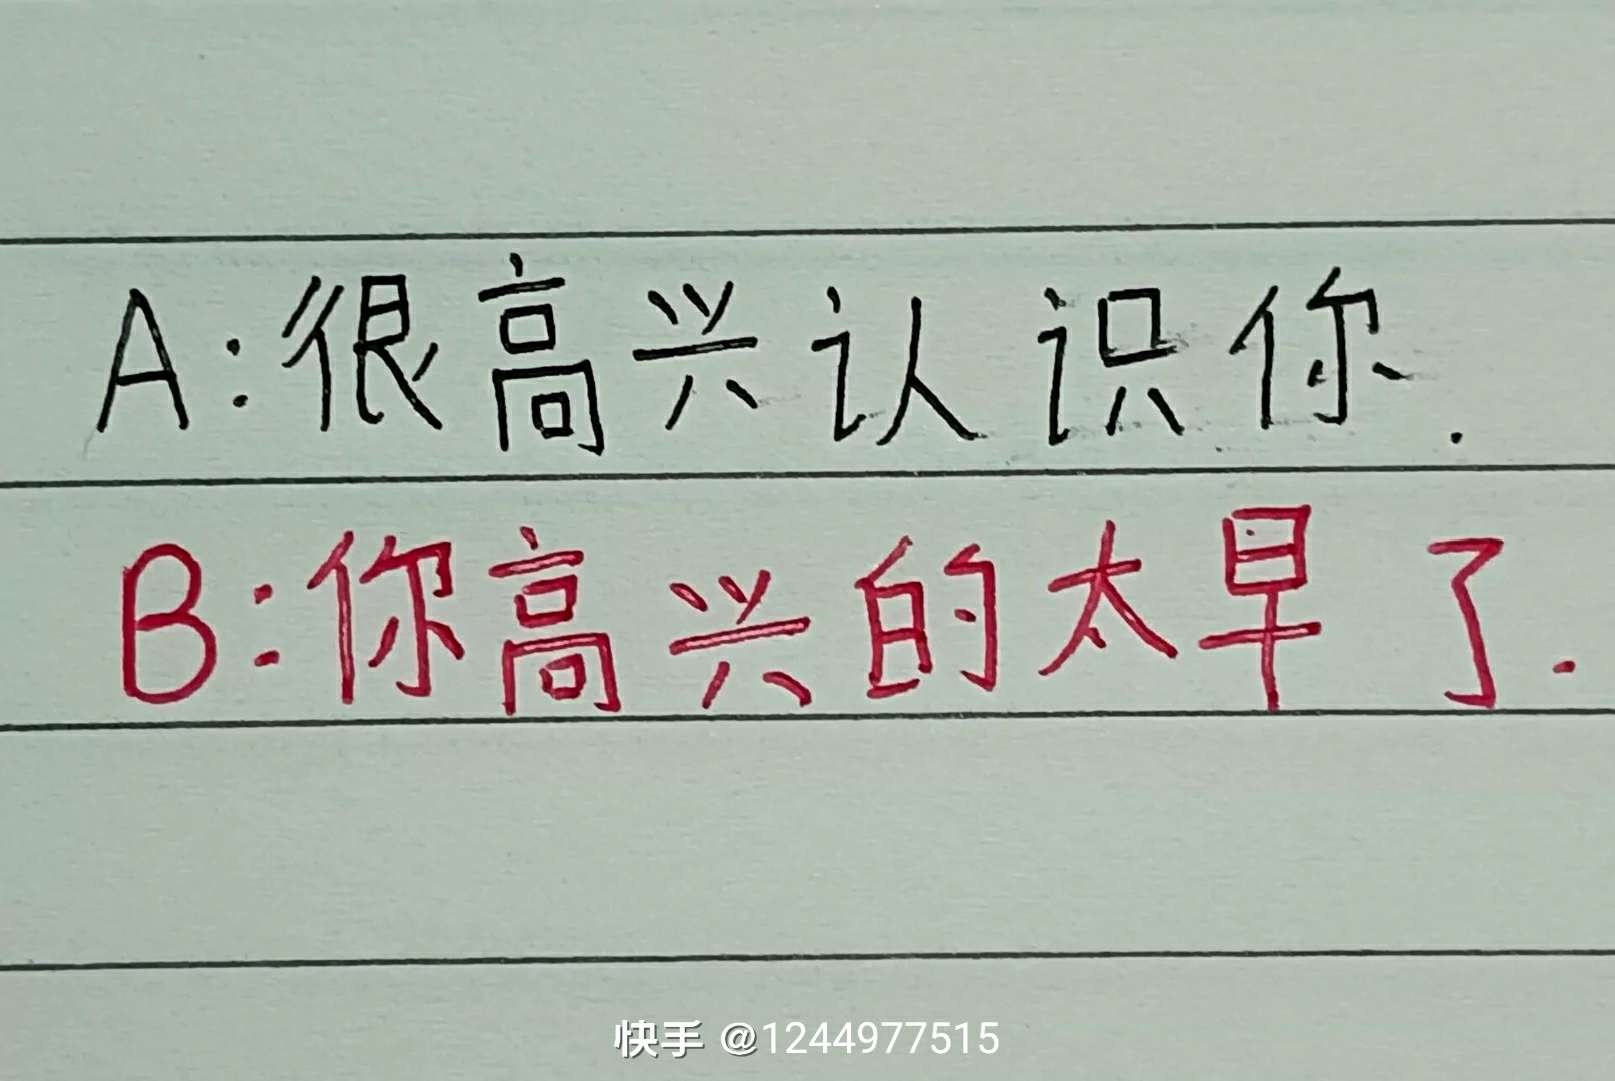 A:很高兴认识你.
B:你高兴的太早了.
快手 @1244977515